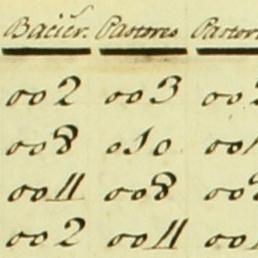 Baciĕr. Pastores Pastor
002 003 00
008 010 00
0011 008 00
002 0011 00